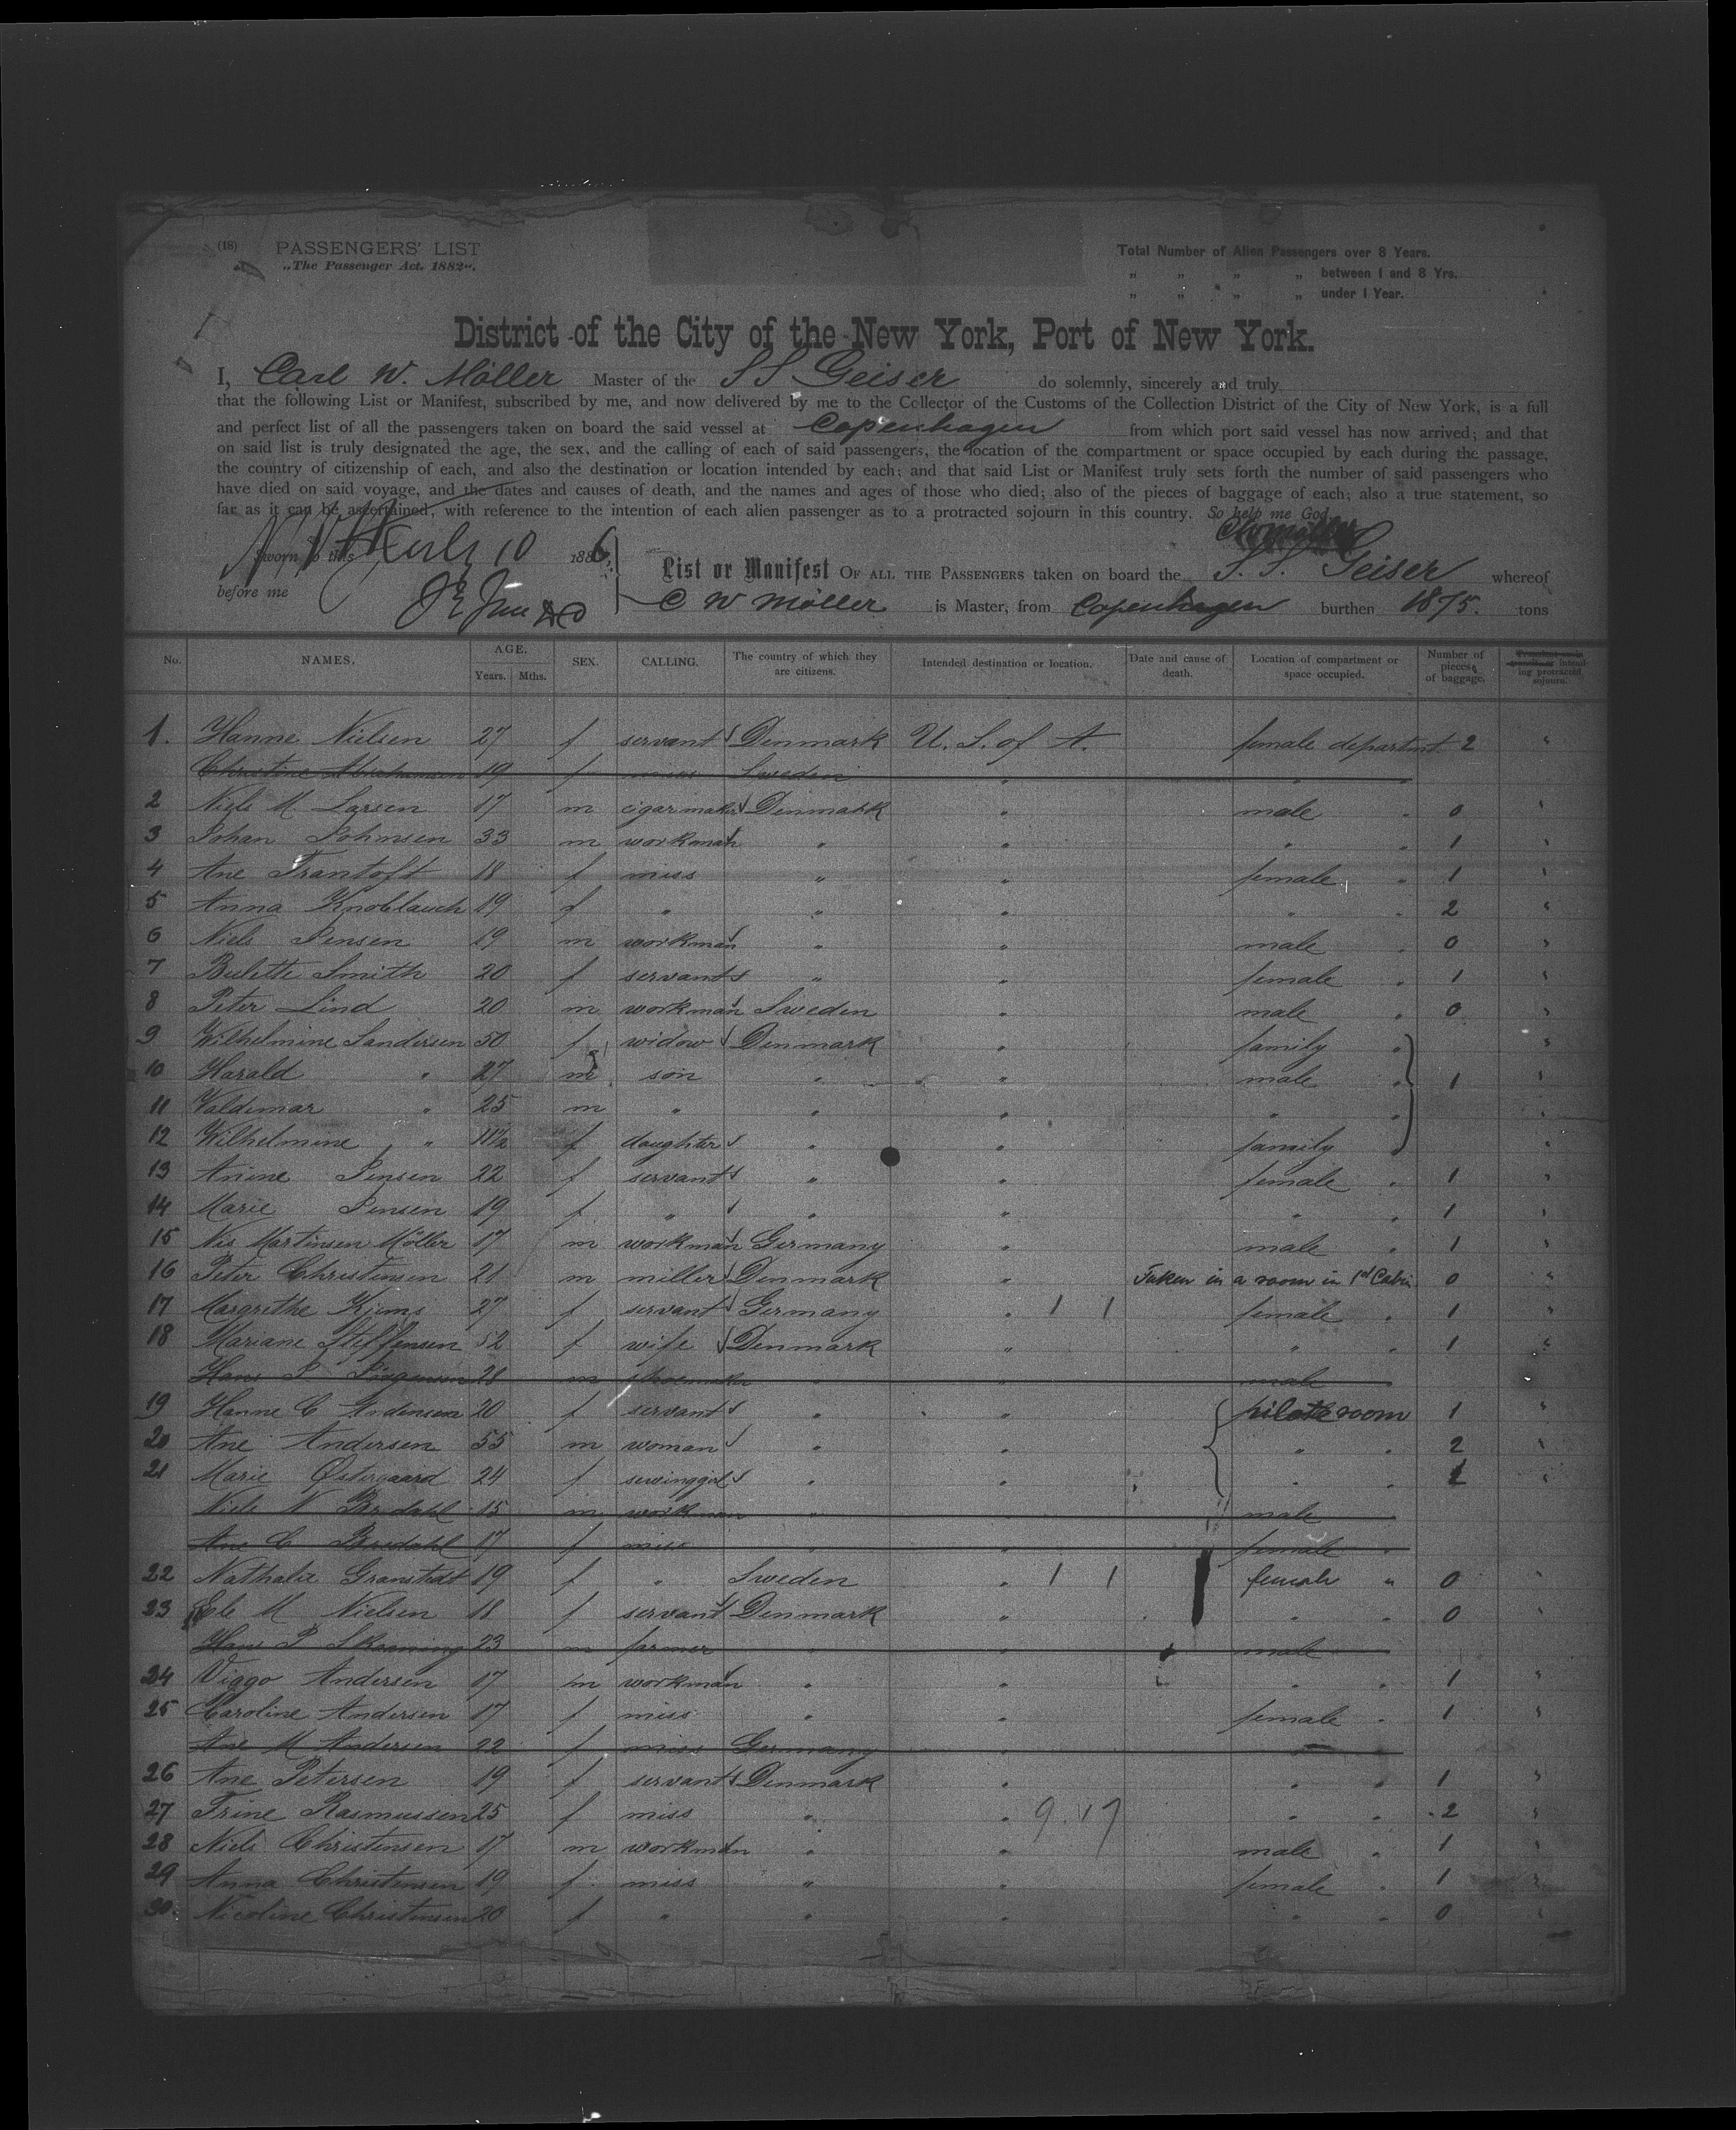 (18) PASSENGERS' LIST
„The Passenger Act, 1882".
Total Number of Alien Passengers over 8 Years.
„ „ „ „ between 1 and 8 Yrs.
„ „ „ „ under 1 Year.
District of the City of the New York, Port of New York.
I, Carl W. Möller Master of the SS Geiser do solemnly, sincerely and truly
that the following List or Manifest, subscribed by me, and now delivered by me to the Collector of the Customs of the Collection District of the City of New York, is a full
and perfect list of all the passengers taken on board the said vessel at Copenhagen from which port said vessel has now arrived; and that
on said list is truly designated the age, the sex, and the calling of each of said passengers, the location of the compartment or space occupied by each during the passage,
the country of citizenship of each, and also the destination or location intended by each; and that said List or Manifest truly sets forth the number of said passengers who
have died on said voyage, and the dates and causes of death, and the names and ages of those who died; also of the pieces of baggage of each; also a true statement, so
far as it can be ascertained, with reference to the intention of each alien passenger as to a protracted sojourn in this country. So help me God.
CWMöller
Sworn to this 10 1886
before me
List or Manifest OF ALL THE PASSENGERS taken on board the S. S. Geiser whereof
C W Möller is Master, from Copenhagen burthen 1875. tons
No. NAMES. AGE. Years. Mths. SEX. CALLING. The country of which they are citizens. Intended destination or location. Date and cause of death. Location of compartment or space occupied. Number of pieces of baggage. intending protracted sojourn.
1. Hanne Nielsen 27 f servant Denmark U. S. of A. female departmt. 2 "
Christine Abrahamsen 19 f miss Sweden " " "
2 Niels M. Larsen 17 m cigarmaker Denmark " male " 0 "
3 Johan Johnsen 33 m workman " " " " 1 "
4 Ane Trantoft 18 f miss " " female " 1 "
5 Anna Knoblauch 19 f " " " " " 2 "
6 Niels Jensen 19 m workman " " male " 0 "
7 Bulette Smith 20 f servant " " female " 1 "
8 Peter Lind 20 m workman Sweden " male " 0 "
9 Wilhelmine Sandersen 50 f widow Denmark " family " "
10 Harald " 27 m son " " male " 1 "
11 Valdemar " 25 m " " " " " "
12 Wilhelmine " 11½ f daughter " " family "
13 Anine Jensen 22 f servant " " female " 1 "
14 Marie Jensen 19 f " " " " " 1 "
15 Nis Martinsen Möller 17 m workman Germany " male " 1 "
16 Peter Christensen 21 m miller Denmark " Taken in a room in 1st Cabin 0 "
17 Margrethe Kjems 27 f servant Germany " 1 1 female " 1 "
18 Mariane Steffensen 52 f wife Denmark " " " 1 "
Hans P Jörgensen 28 m shoemaker " " male
19 Hanne C Andersen 20 f servant " " pilots room 1 "
20 Ane Andersen 55 m woman " " " " 2 "
21 Marie Østergaard 24 f sewinggirl " " " " 1 "
Niels N Bredahl 15 m workman " " male
Ane C Bredahl 17 f miss " " female "
22 Nathalia Granstedt 19 f " Sweden " 1 1 female " 0 "
23 Ele M Nielsen 18 f servant Denmark " " " 0 "
Hans P 23 m farmer " " male
24 Viggo Andersen 17 m workman " " " " 1 "
25 Caroline Andersen 17 f miss " " female " 1 "
Ane M Andersen 22 f miss Germany " "
26 Ane Petersen 19 f servant Denmark " " " 1 "
27 Trine Rasmussen 25 f miss " " 9.17 " " 2 "
28 Niels Christensen 17 m workman " " male " 1 "
29 Anna Christensen 19 f miss " " female " 1 "
30 Nicoline Christensen 20 f " " " " " 0 "